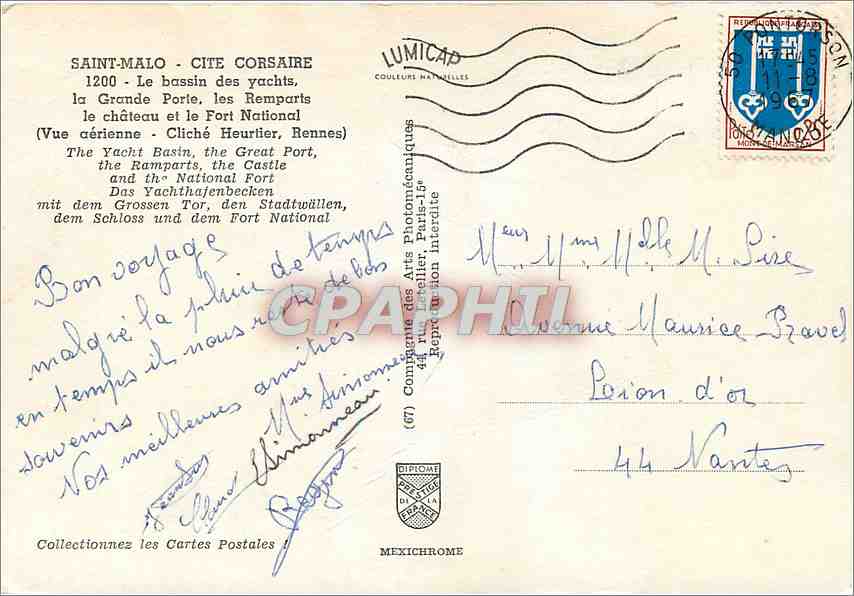 SAINT-MALO - CITE CORSAIRE
1200 - Le bassin des yachts,
la Grande Porte, les Remparts
le château et le Fort National
(Vue aérienne - Cliché Heurtier, Rennes)
The Yacht Basin, the Great Port,
the Ramparts, the Castle
and the National Fort
Das Yachthafenbecken
mit dem Grossen Tor, den Stadtwällen,
dem Schloss und dem Fort National
Bon voyage
malgré la pluie de temps
en temps il nous reste de bons
souvenirs
Nos meilleures amitiés
Simonneau
Collectionnez les Cartes Postales !
LUMICAP
COULEURS NATURELLES
(67) Compagnie des Arts Photomécaniques
44, rue Letellier, Paris-15e
Reproduction interdite
CPAPHIL
DIPLOME
PRESTIGE
DE LA
FRANCE
MEXICHROME
REPUBLIQUE FRANÇAISE
MONT-DE-MARSAN
50 PONTORSON
17-45
11-8
MANCHE
Meur Mme Melle M.
Avenue Maurice
Loion d'or
44 Nantes